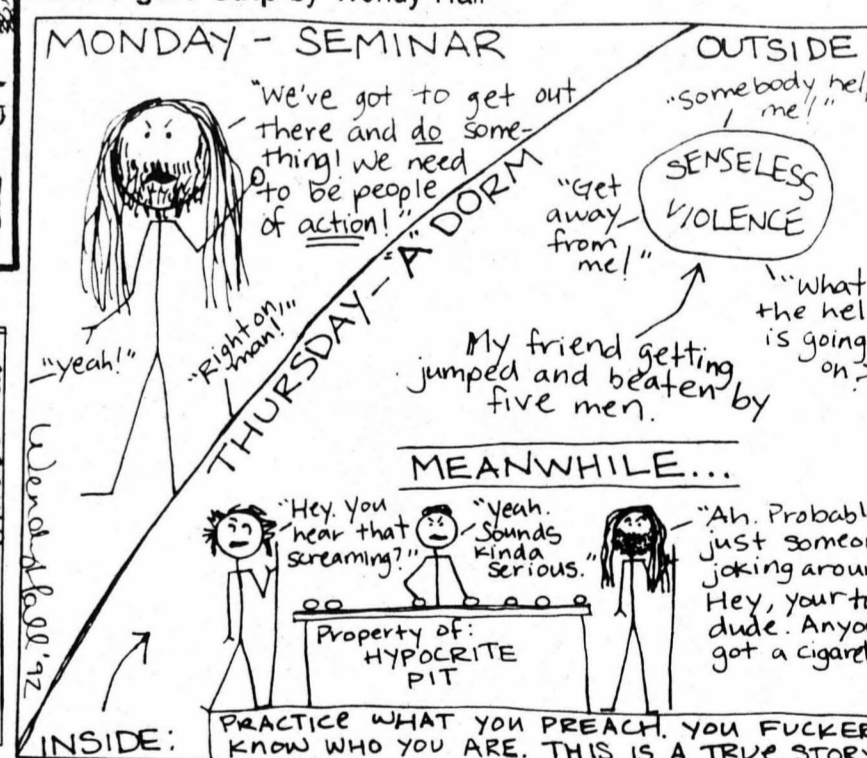 by Wendy Hall
MONDAY - SEMINAR
"We've got to get out
there and do some-
thing! We need
to be people
of action!"
"Yeah!"
"Right on,
man!"
Wendy Hall '92
THURSDAY - "A" DORM
OUTSIDE
"Somebody hel
me!"
SENSELESS
VIOLENCE
"Get
away
from
me!"
"What
the hel
is going
on?
My friend getting
jumped and beaten by
five men.
MEANWHILE...
"Hey. You
hear that
screaming?"
"Yeah.
Sounds
kinda
serious."
"Ah. Probabl
just someo
joking arou
Hey, your tu
dude. Anyo
got a cigaret
Property of:
HYPOCRITE
PIT
INSIDE:
PRACTICE WHAT YOU PREACH. YOU FUCKE
KNOW WHO YOU ARE. THIS IS A TRUE STORY